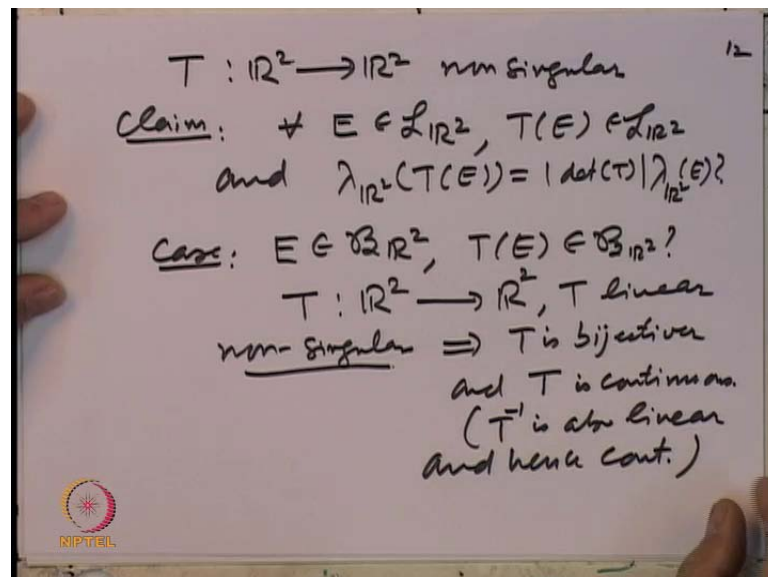 12
T : ℝ² ⟶ ℝ² non singular
Claim: ∀ E ∈ 𝓛_ℝ², T(E) ∈ 𝓛_ℝ²
and λ_ℝ²(T(E)) = |det(T)| λ_ℝ²(E)?
Case: E ∈ 𝓑_ℝ², T(E) ∈ 𝓑_ℝ²?
T : ℝ² ⟶ ℝ², T linear
non-singular ⇒ T is bijective
and T is continuous.
(T⁻¹ is also linear
and hence cont.)
NPTEL